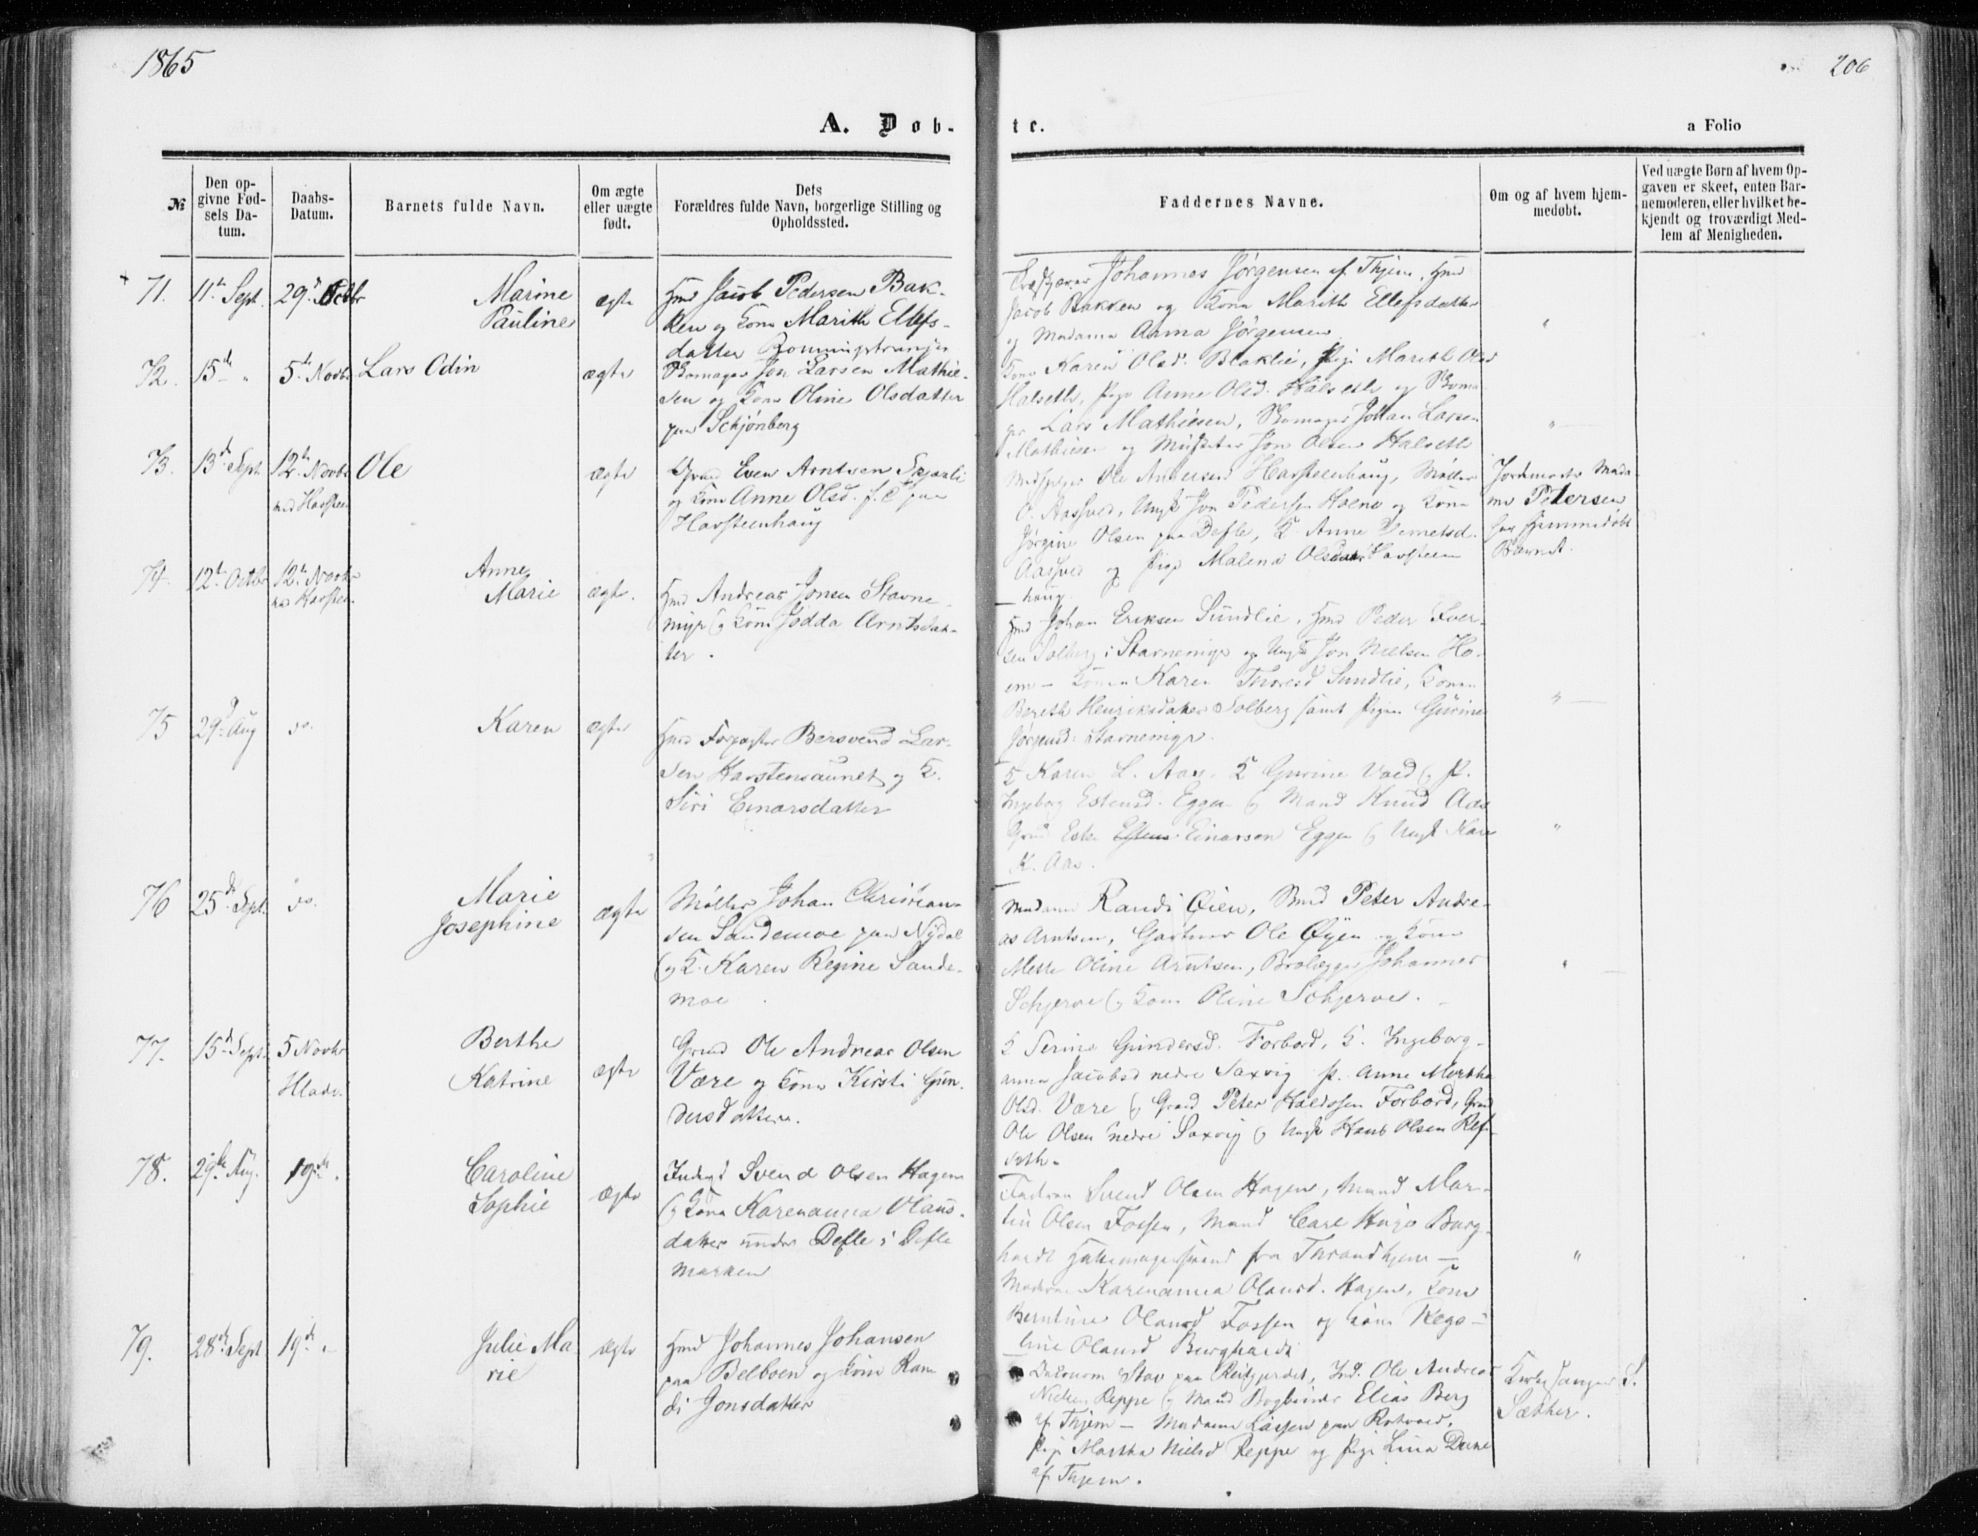 1865
206
A. Døb-
te.
a Folio
№
Den op-
givne Fød-
sels Da-
tum.
Daabs-
Datum.
Barnets fulde Navn.
Om ægte
eller uægte
født.
Dets
Forældres fulde Navn, borgerlige Stilling og
Opholdssted.
Faddernes Navne.
Om og af hvem hjem-
medøbt.
Ved uægte Børn af hvem Op-
gaven er skeet, enten Bar-
nemoderen, eller hvilket be-
kjendt og troværdigt Med-
lem af Menigheden.
71. 11te Sept. 29de Octbr
Marine
Pauline
ægte
Hmd Jacob Pedersen Bak-
ken og Kone Marith Ellefs-
datter
Johannes Jørgensen af Thjem, Hmd
Jacob Bakken og Kone Marith Ellefsdatter
og Madame Anna Jørgensen
72. 15de " 5te Novbr Lars Odin
ægte
Skomager Jon Larsen Mathie-
sen og Kone Oline Olsdatter
paa Schjønberg
Kone Karen Olsd. Braklie, Pige Marith Olsd
Halseth, Pige Anne Olsd. Halseth og Skoma-
ger Lars Mathiesen, Skomager Johan Larsen
Mathiesen og Musketer Jon Olsen Halseth
73. 13de Sept. 12te Novbr Ole
ved Havstein
ægte
Even Arntsen
og Kone Anne Olsd. f. E. paa
Havsteenhaug
Ole Andersen Havsteenhaug, Møller
O. Aasved, Ungk Jon Pedersen Holme og Kone
Jørgine Olsen paa Defle, K Anne
Aasved og Pige Malena Olsdatter Havsteen
haug.
Jordemoder Mada-
me Petersen
har hjemmedøbt
Barnet.
74. 12te Octbr 12te Novbr
ved Havstein
Anne
Marie
ægte.
Hmd Andreas Jonsen Stavne
myr og Kone Jodda Arntsdat-
ter.
Hmd Johan Eriksen Sundlie, Hmd Peder Iver-
sen Solberg i Stavnemyr og Ungk Jon Nielsen Ho-
em - Konen Karen Thoresd Sundlie, Konen
Bereth Henriksdatter Solberg samt Pigen Gurine
Jørgensd: Stavnemyr.
75 29de Aug do.
Karen
ægte
Hmd Forpagter Bersvend Lar-
sen Havstensaunet og K.
Siri Einarsdatter
K Karen L. Aas, K Gurine Vaed og P.
Ingeborg Estensd. Eggen og Mand Knud Aas
Grd. Esten Einarsen Eggen og Ungk
K. Aas.
76 25de Sept. do.
Marie
Josephine
ægte
Møller Johan Christian-
sen Sandemoe paa Nydal
og K. Karen Regine Sande-
moe
Madame Randi Øien, Peter Andre-
as Arntsen, Gartner Ole Øyen og Kone
Mette Oline Arntsen, Brolægger Johannes
Schjerve og Kone Oline Schjerve.
77. 15de Sept. 5 Novbr
Hlade.
Berthe
Katrine
ægte
Grmd Ole Andreas Olsen
Være og Kone Kirsti Gun-
dersdatter.
K Serine Gundersd. Forbord, K. Ingeborg-
anna Jacobsd nedre Saxvig P. Anne Martha
Olsd. Være og Grmd Peter Haldosen Forbord, Grmd
Ole Olsen nedre Saxvig og Ungk Hans Olsen Ref-
seth.
78. 29de Aug. 19de.
Caroline
Sophie
ægte
Inderst Svend Olsen Hagen
og Kone Karenanna Olaus-
datter under Defle i Defle
marken
Faderen Svend Olsen Hagen, Mand Mar-
tin Olsen Fossen, Mand Carl Hugo Burg-
hardt fra Throndhjem -
Moderen Karenanna Olausd. Hagen, Kone
Berntine Olausd Fossen og Kone Rego-
line Olausd Burghardt
79. 28de Sept 19de
Julie Ma
rie
ægte
Hmd Johannes Johansen
paa Belboen og Kone Ran
di Jonsdatter
Stav paa Reitgjerdet, Ind. Ole Andreas
Nielsen Reppe og Mand Bogbinder Elias Berg
af Thjem - Madame Larsen paa Rotvold,
Pige Martha Nielsd Reppe og Pige Lina
af Thjem.
Kirkesanger S.
Sæther.